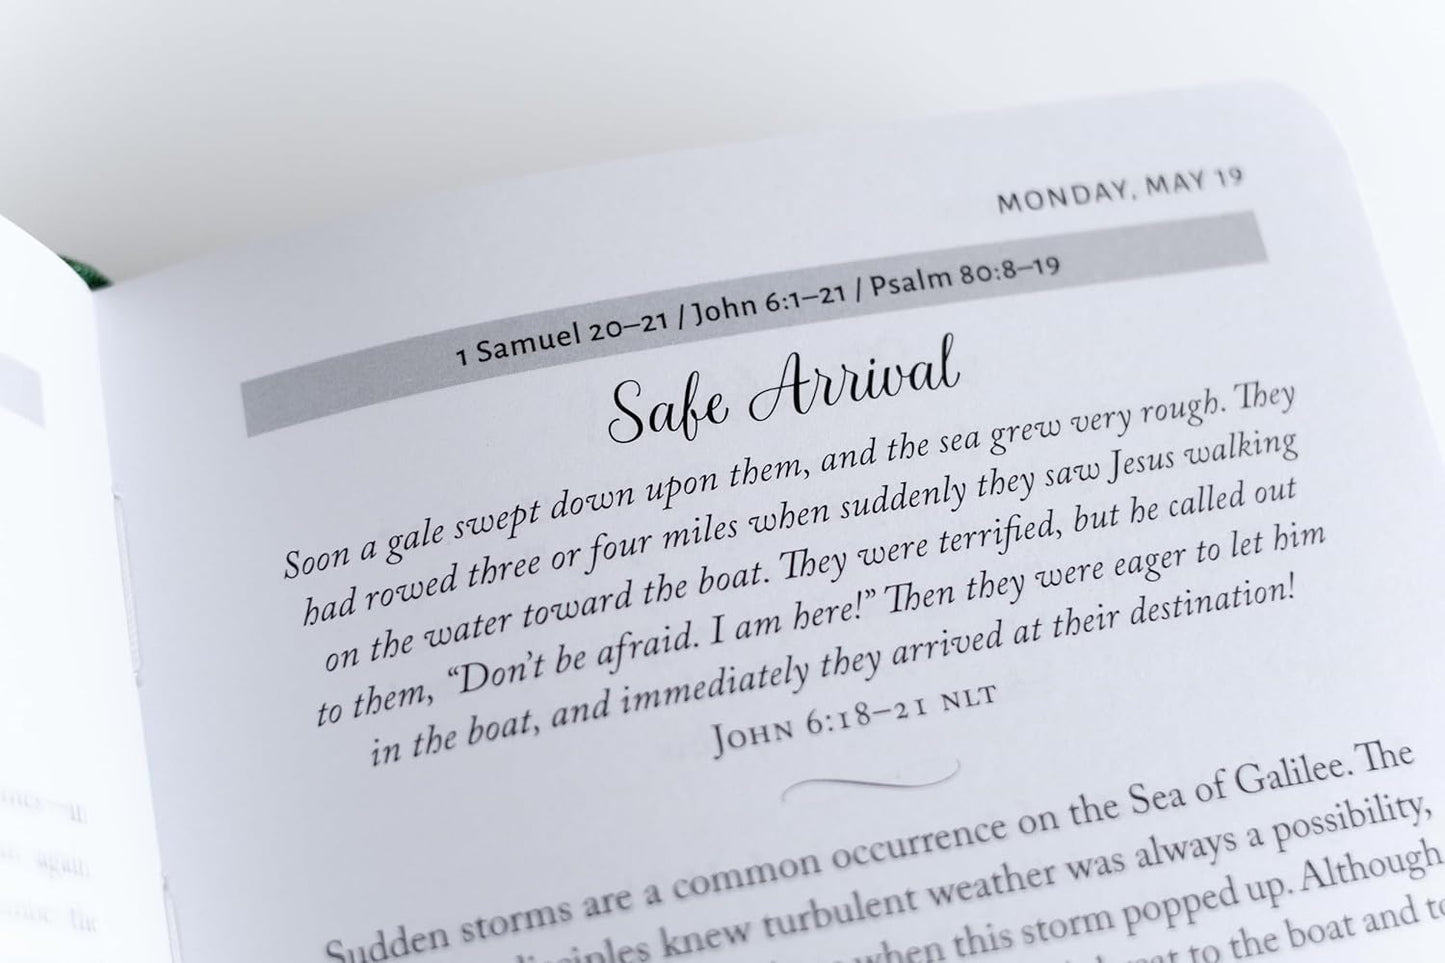 MONDAY, MAY 19
1 Samuel 20–21 / John 6:1–21 / Psalm 80:8–19
Safe Arrival
Soon a gale swept down upon them, and the sea grew very rough. They
had rowed three or four miles when suddenly they saw Jesus walking
on the water toward the boat. They were terrified, but he called out
to them, “Don’t be afraid. I am here!” Then they were eager to let him
in the boat, and immediately they arrived at their destination!
John 6:18–21 NLT
Sudden storms are a common occurrence on the Sea of Galilee. The
knew turbulent weather was always a possibility,
when this storm popped up. Although
to the boat and to
again
the